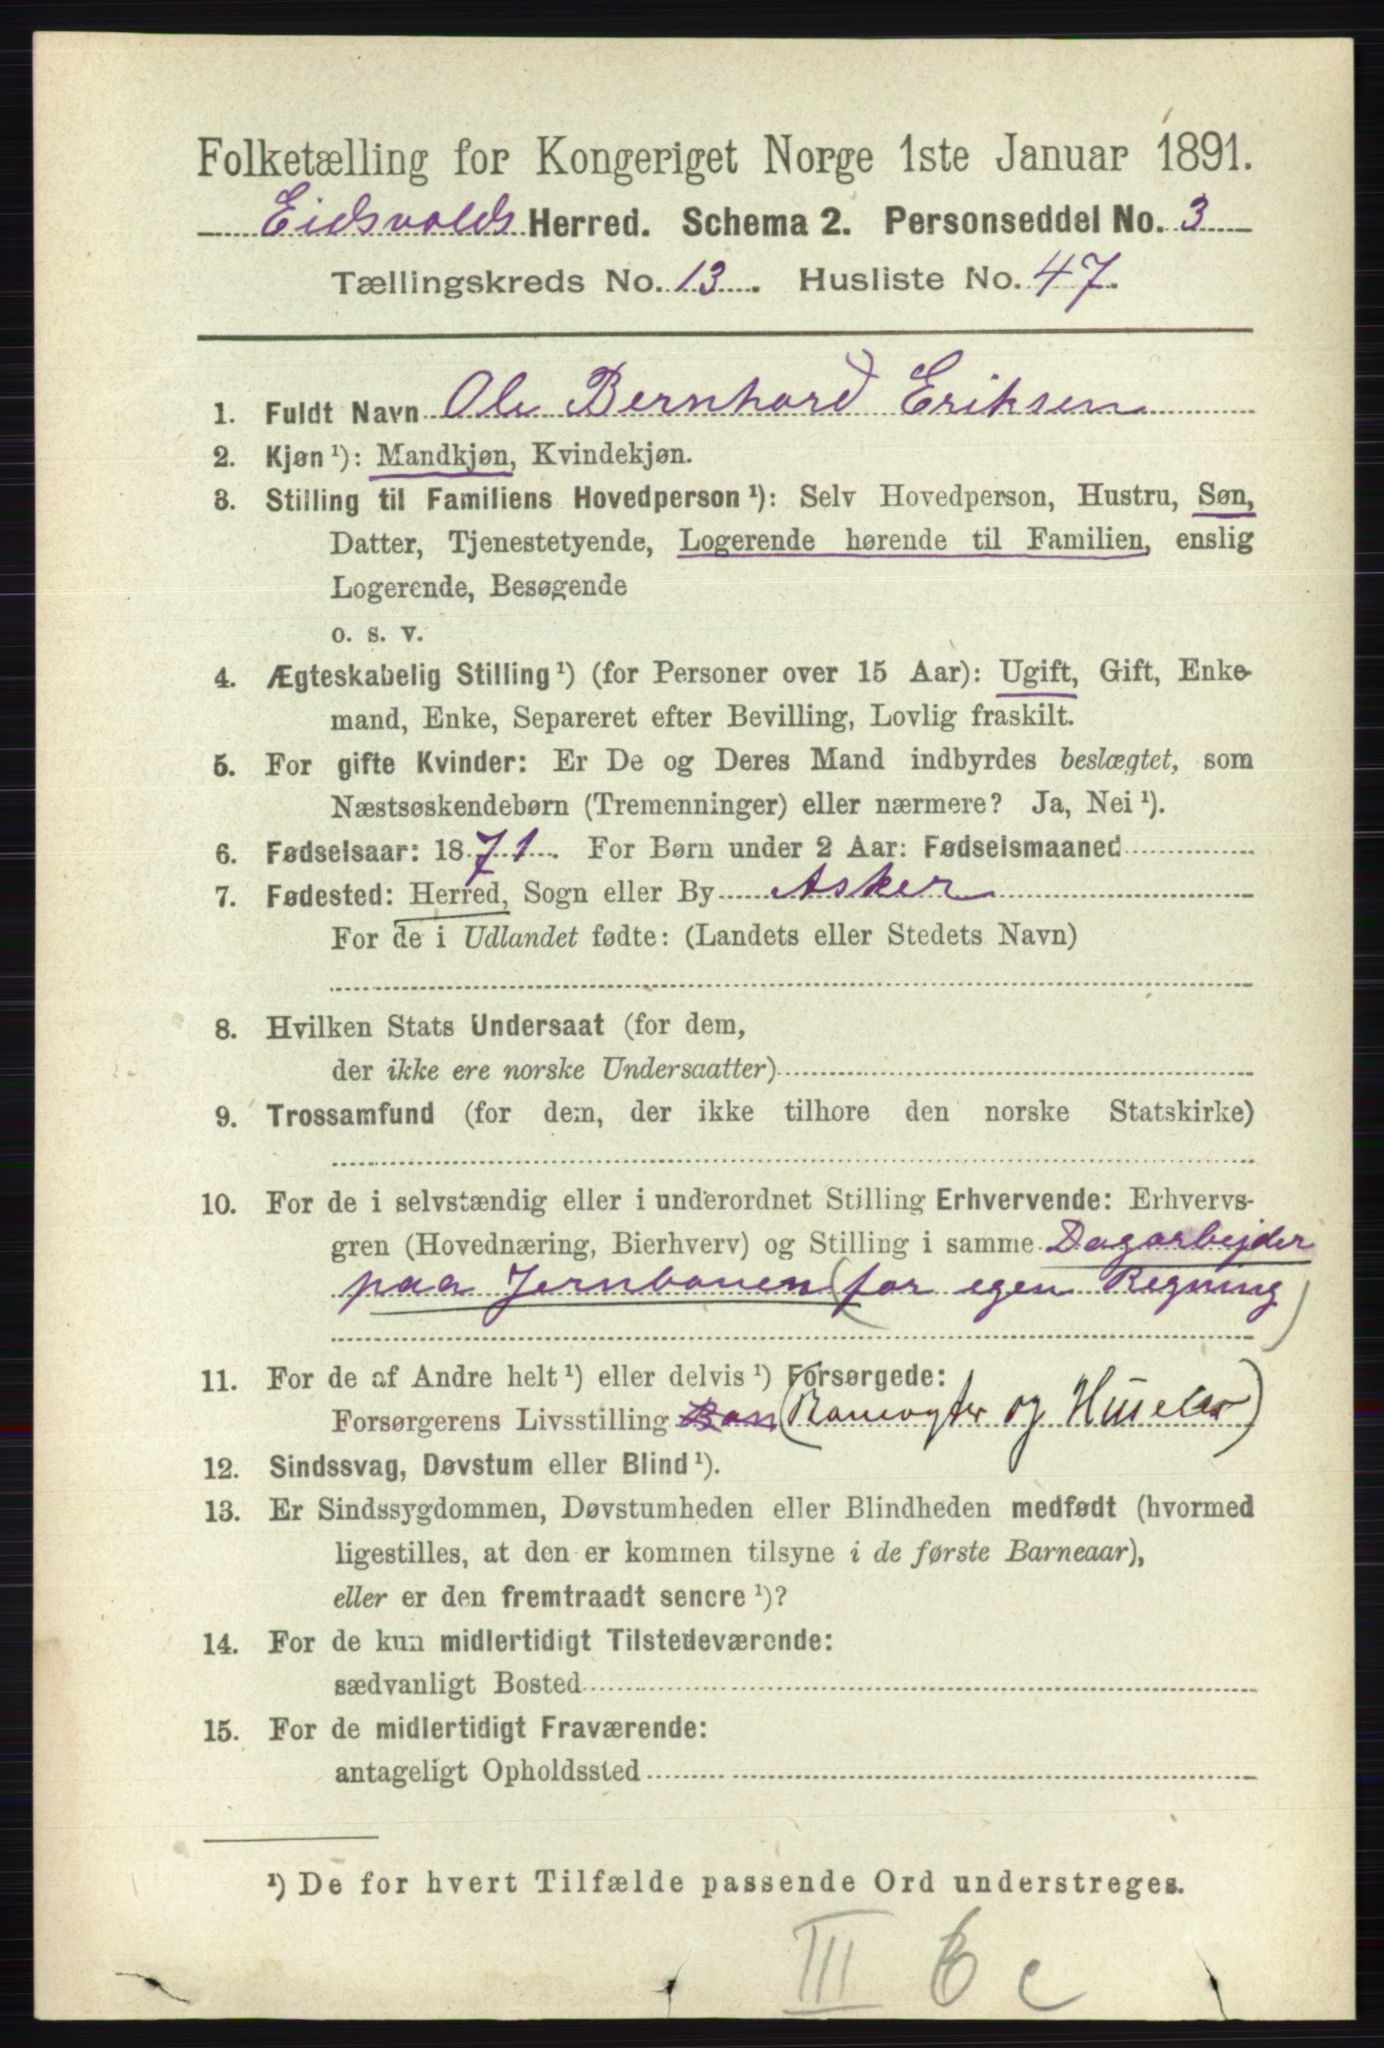 Folketælling for Kongeriget Norge 1ste Januar 1891.
Eidsvolds Herred. Schema 2. Personseddel No. 3
Tællingskreds No. 13. Husliste No. 47.
1. Fuldt Navn Ole Bernhard Eriksen
2. Kjøn ¹): Mandkjøn, Kvindekjøn.
3. Stilling til Familiens Hovedperson ¹): Selv Hovedperson, Hustru, Søn,
Datter, Tjenestetyende, Logerende hørende til Familien, enslig
Logerende, Besøgende
o. s. v.
4. Ægteskabelig Stilling ¹) (for Personer over 15 Aar): Ugift, Gift, Enke-
mand, Enke, Separeret efter Bevilling, Lovlig fraskilt.
5. For gifte Kvinder: Er De og Deres Mand indbyrdes beslægtet, som
Næstsøskendebørn (Tremenninger) eller nærmere? Ja, Nei ¹).
6. Fødselsaar: 1871. For Børn under 2 Aar: Fødselsmaaned
7. Fødested: Herred, Sogn eller By Asker
For de i Udlandet fødte: (Landets eller Stedets Navn)
8. Hvilken Stats Undersaat (for dem,
der ikke ere norske Undersaatter)
9. Trossamfund (for dem, der ikke tilhore den norske Statskirke)
10. For de i selvstændig eller i underordnet Stilling Erhvervende: Erhvervs-
gren (Hovednæring, Bierhverv) og Stilling i samme Dagarbejder
paa Jernbanen (for egen Regning)
11. For de af Andre helt ¹) eller delvis ¹) Forsørgede:
Forsørgerens Livsstilling Ban (Banevogter og Huseier)
12. Sindssvag, Døvstum eller Blind ¹).
13. Er Sindssygdommen, Døvstumheden eller Blindheden medfødt (hvormed
ligestilles, at den er kommen tilsyne i de første Barneaar),
eller er den fremtraadt senere ¹)?
14. For de kun midlertidigt Tilstedeværende:
sædvanligt Bosted
15. For de midlertidigt Fraværende:
antageligt Opholdssted
¹) De for hvert Tilfælde passende Ord understreges.
III 6 c